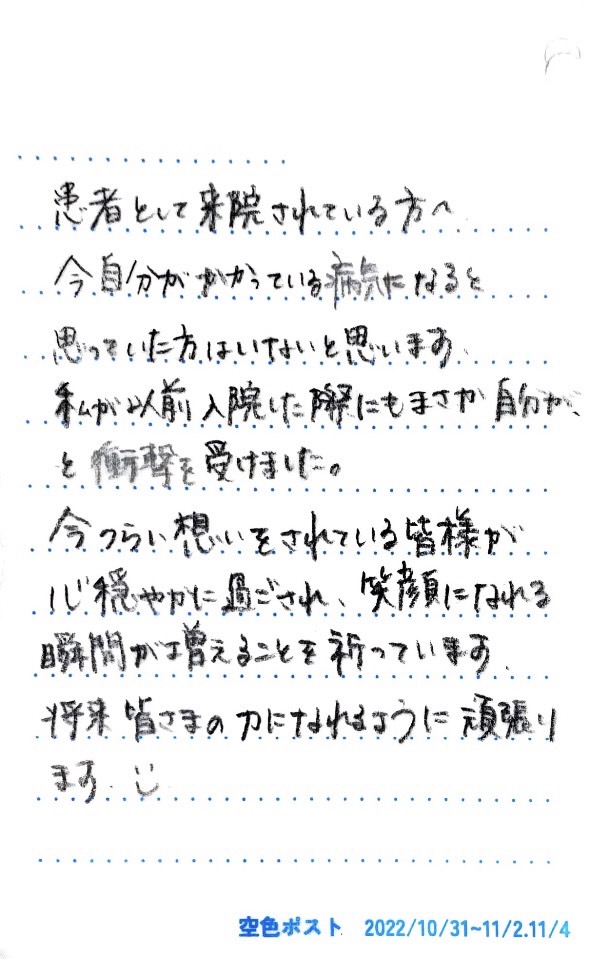 患者として来院されている方へ
今自分がかかっている病気になると
思っていた方はいないと思います.
私が以前入院した際にもまさか自分が、
と衝撃を受けました。
今つらい想いをされている皆様が
心穏やかに過ごされ、笑顔になれる
瞬間が増えることを祈っています.
将来皆さまの力になれるように頑張り
ます.
空色ポスト 2022/10/31~11/2.11/4